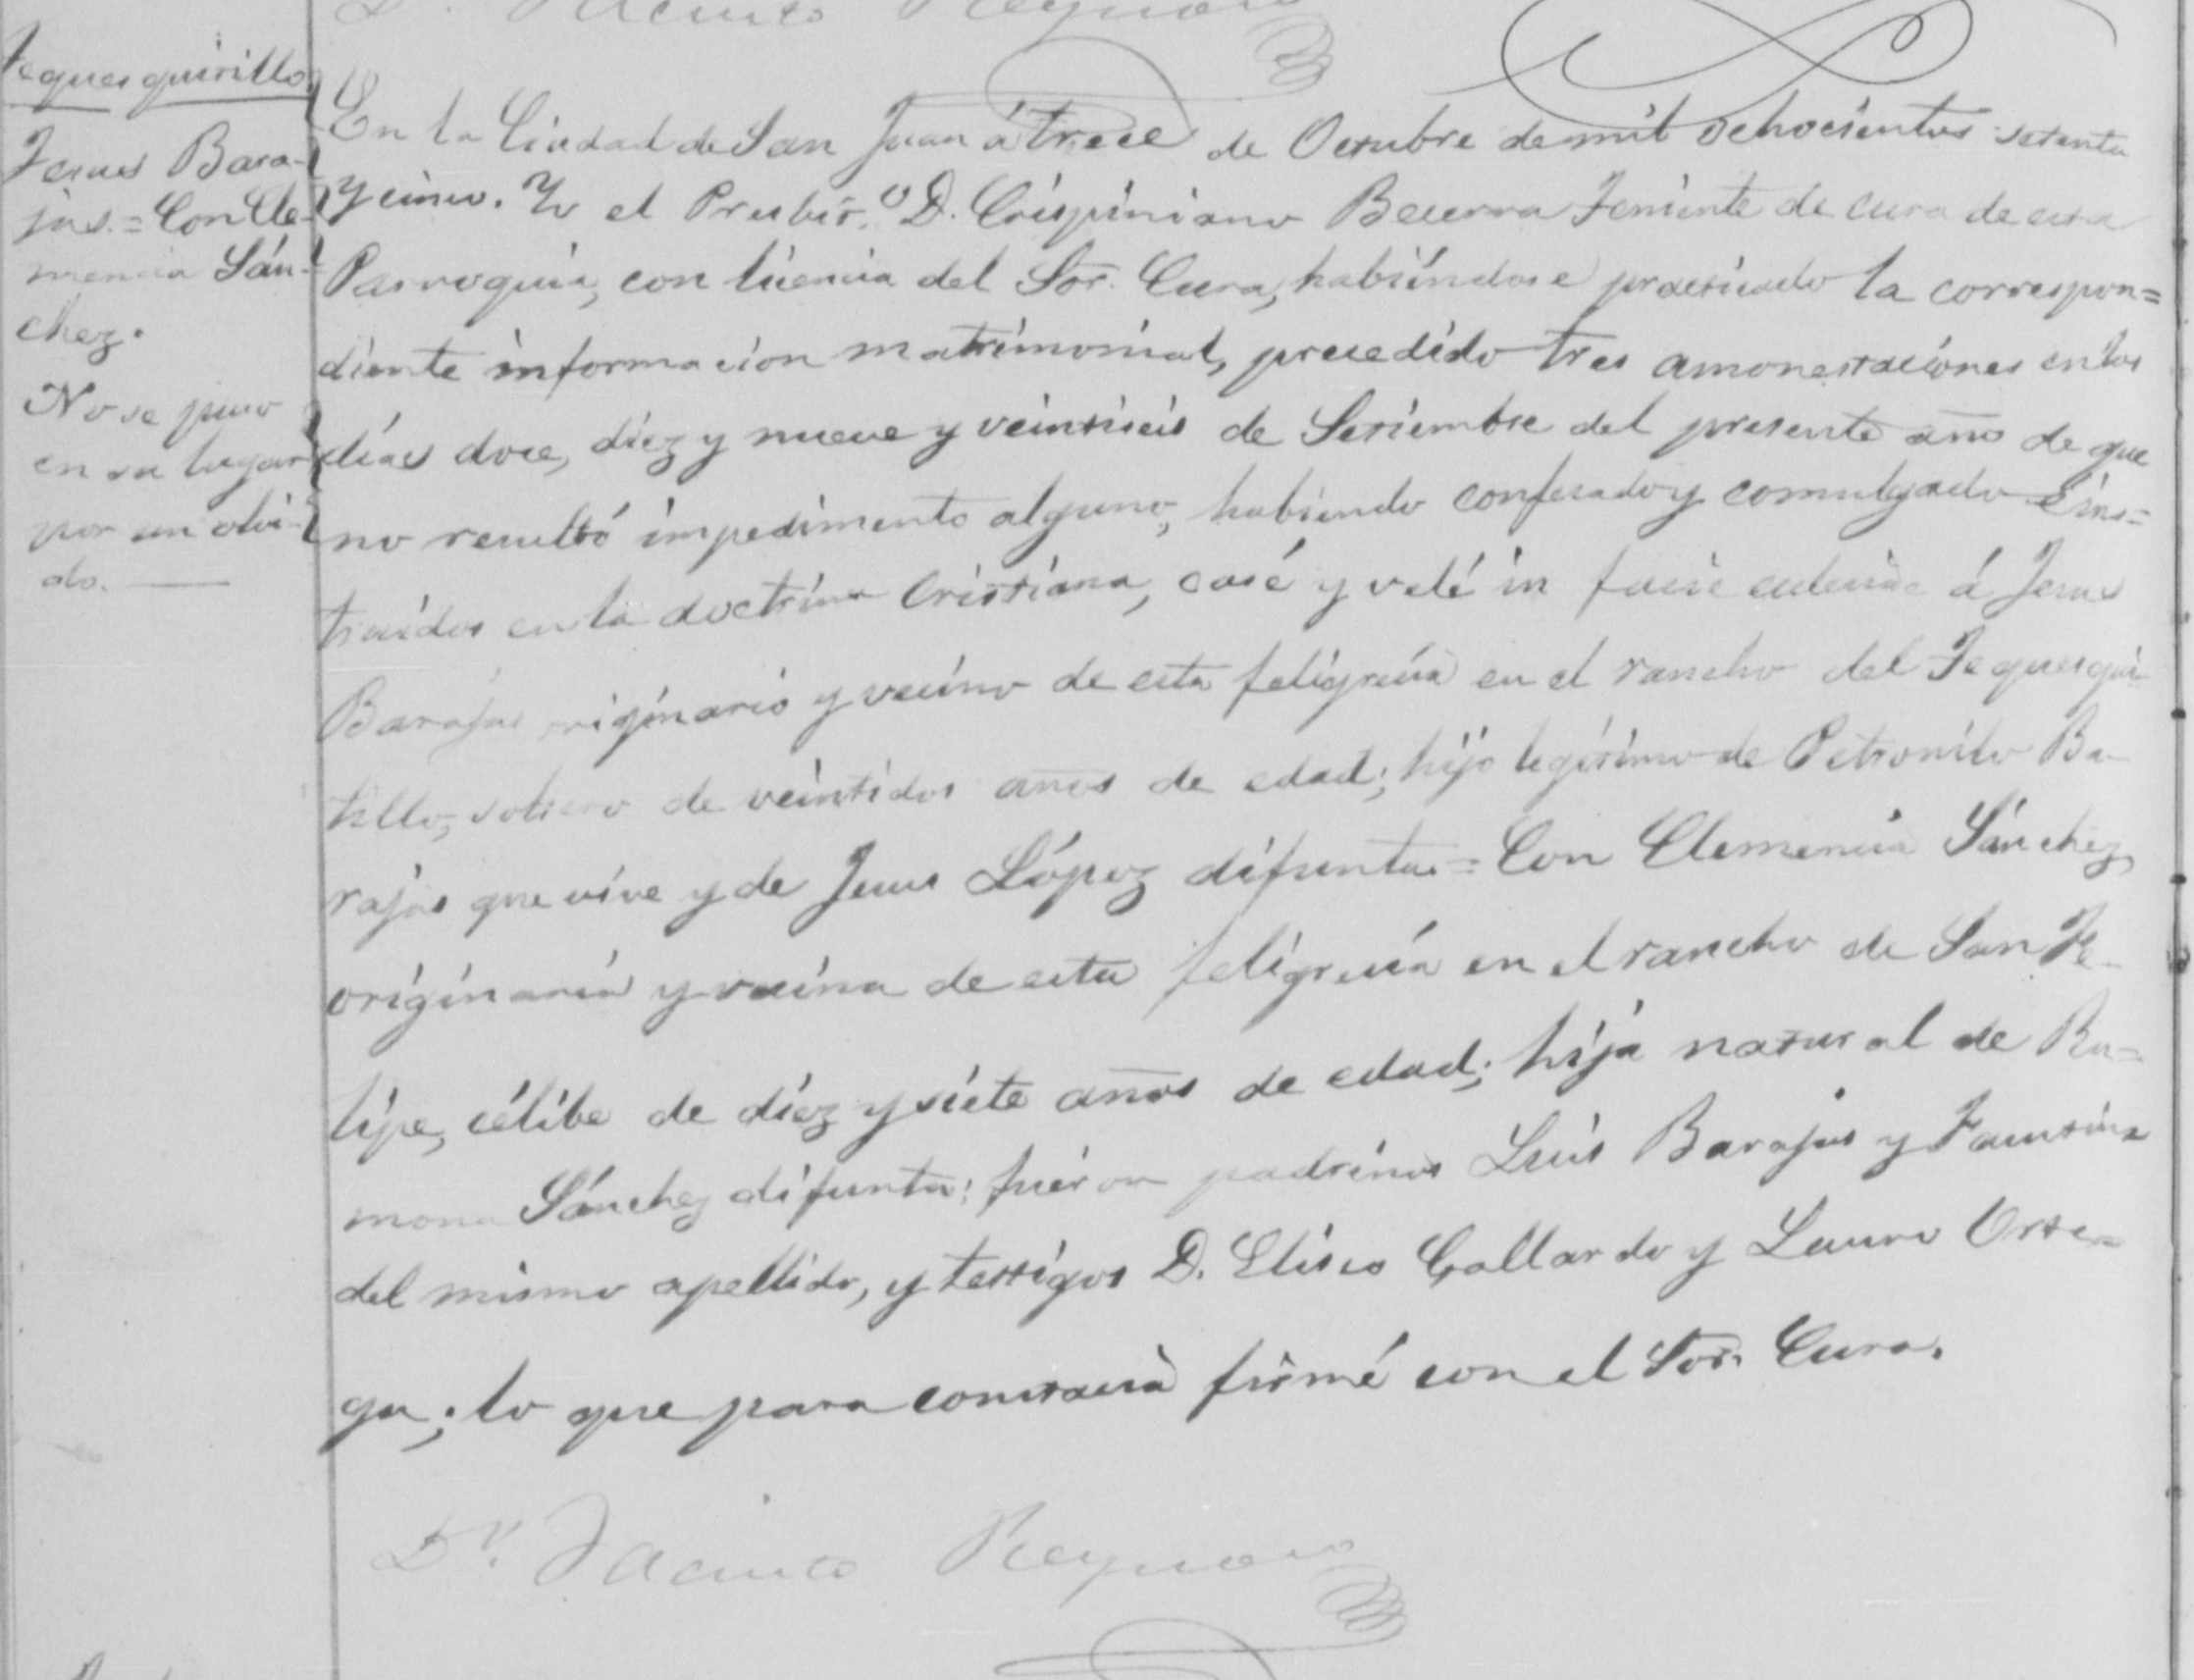 Tequesquirillo
Jesus Bara-
jas.=Con Cle-
mencia Sán-
chez.
No se puso
en su lugar
por un olvi-
do.
En la Ciudad de San Juan á trece de Octubre de mil ochocientos setenta
y cinco. Yo el Presbit.º D. Crispiniano Becerra Teniente de cura de esta
Parroquia, con licencia del Sor. Cura, habiéndose practicado la correspon=
diente informacion matrimonial, precedido tres amonestaciones en los
días doce, diez y nueve y veintiseis de Setiembre del presente año de que
no resultó impedimento alguno, habiendo confesado y comulgado é ins=
truidos en la doctrina Cristiana, casé y velé in facie eclesiae á Jesus
Barajas originario y vecino de esta feligresía en el rancho del Tequesqui-
rillo, soltero de veintidos años de edad; hijo legítimo de Petronilo Ba-
rajas que vive y de Jesus López difunta.=Con Clemencia Sánchez
originaria y vecina de esta feligresía en el rancho de San Fe-
lipe, célibe de diez y siete años de edad; hija natural de Ra=
mona Sánchez difunta; fueron padrinos Luis Barajas y Faustina
del mismo apellido, y testigos D. Eliseo Gallardo y Lauro Orte-
ga; lo que para constancia firmé con el Sor. Cura.
Dr. Jacinto Reynoso